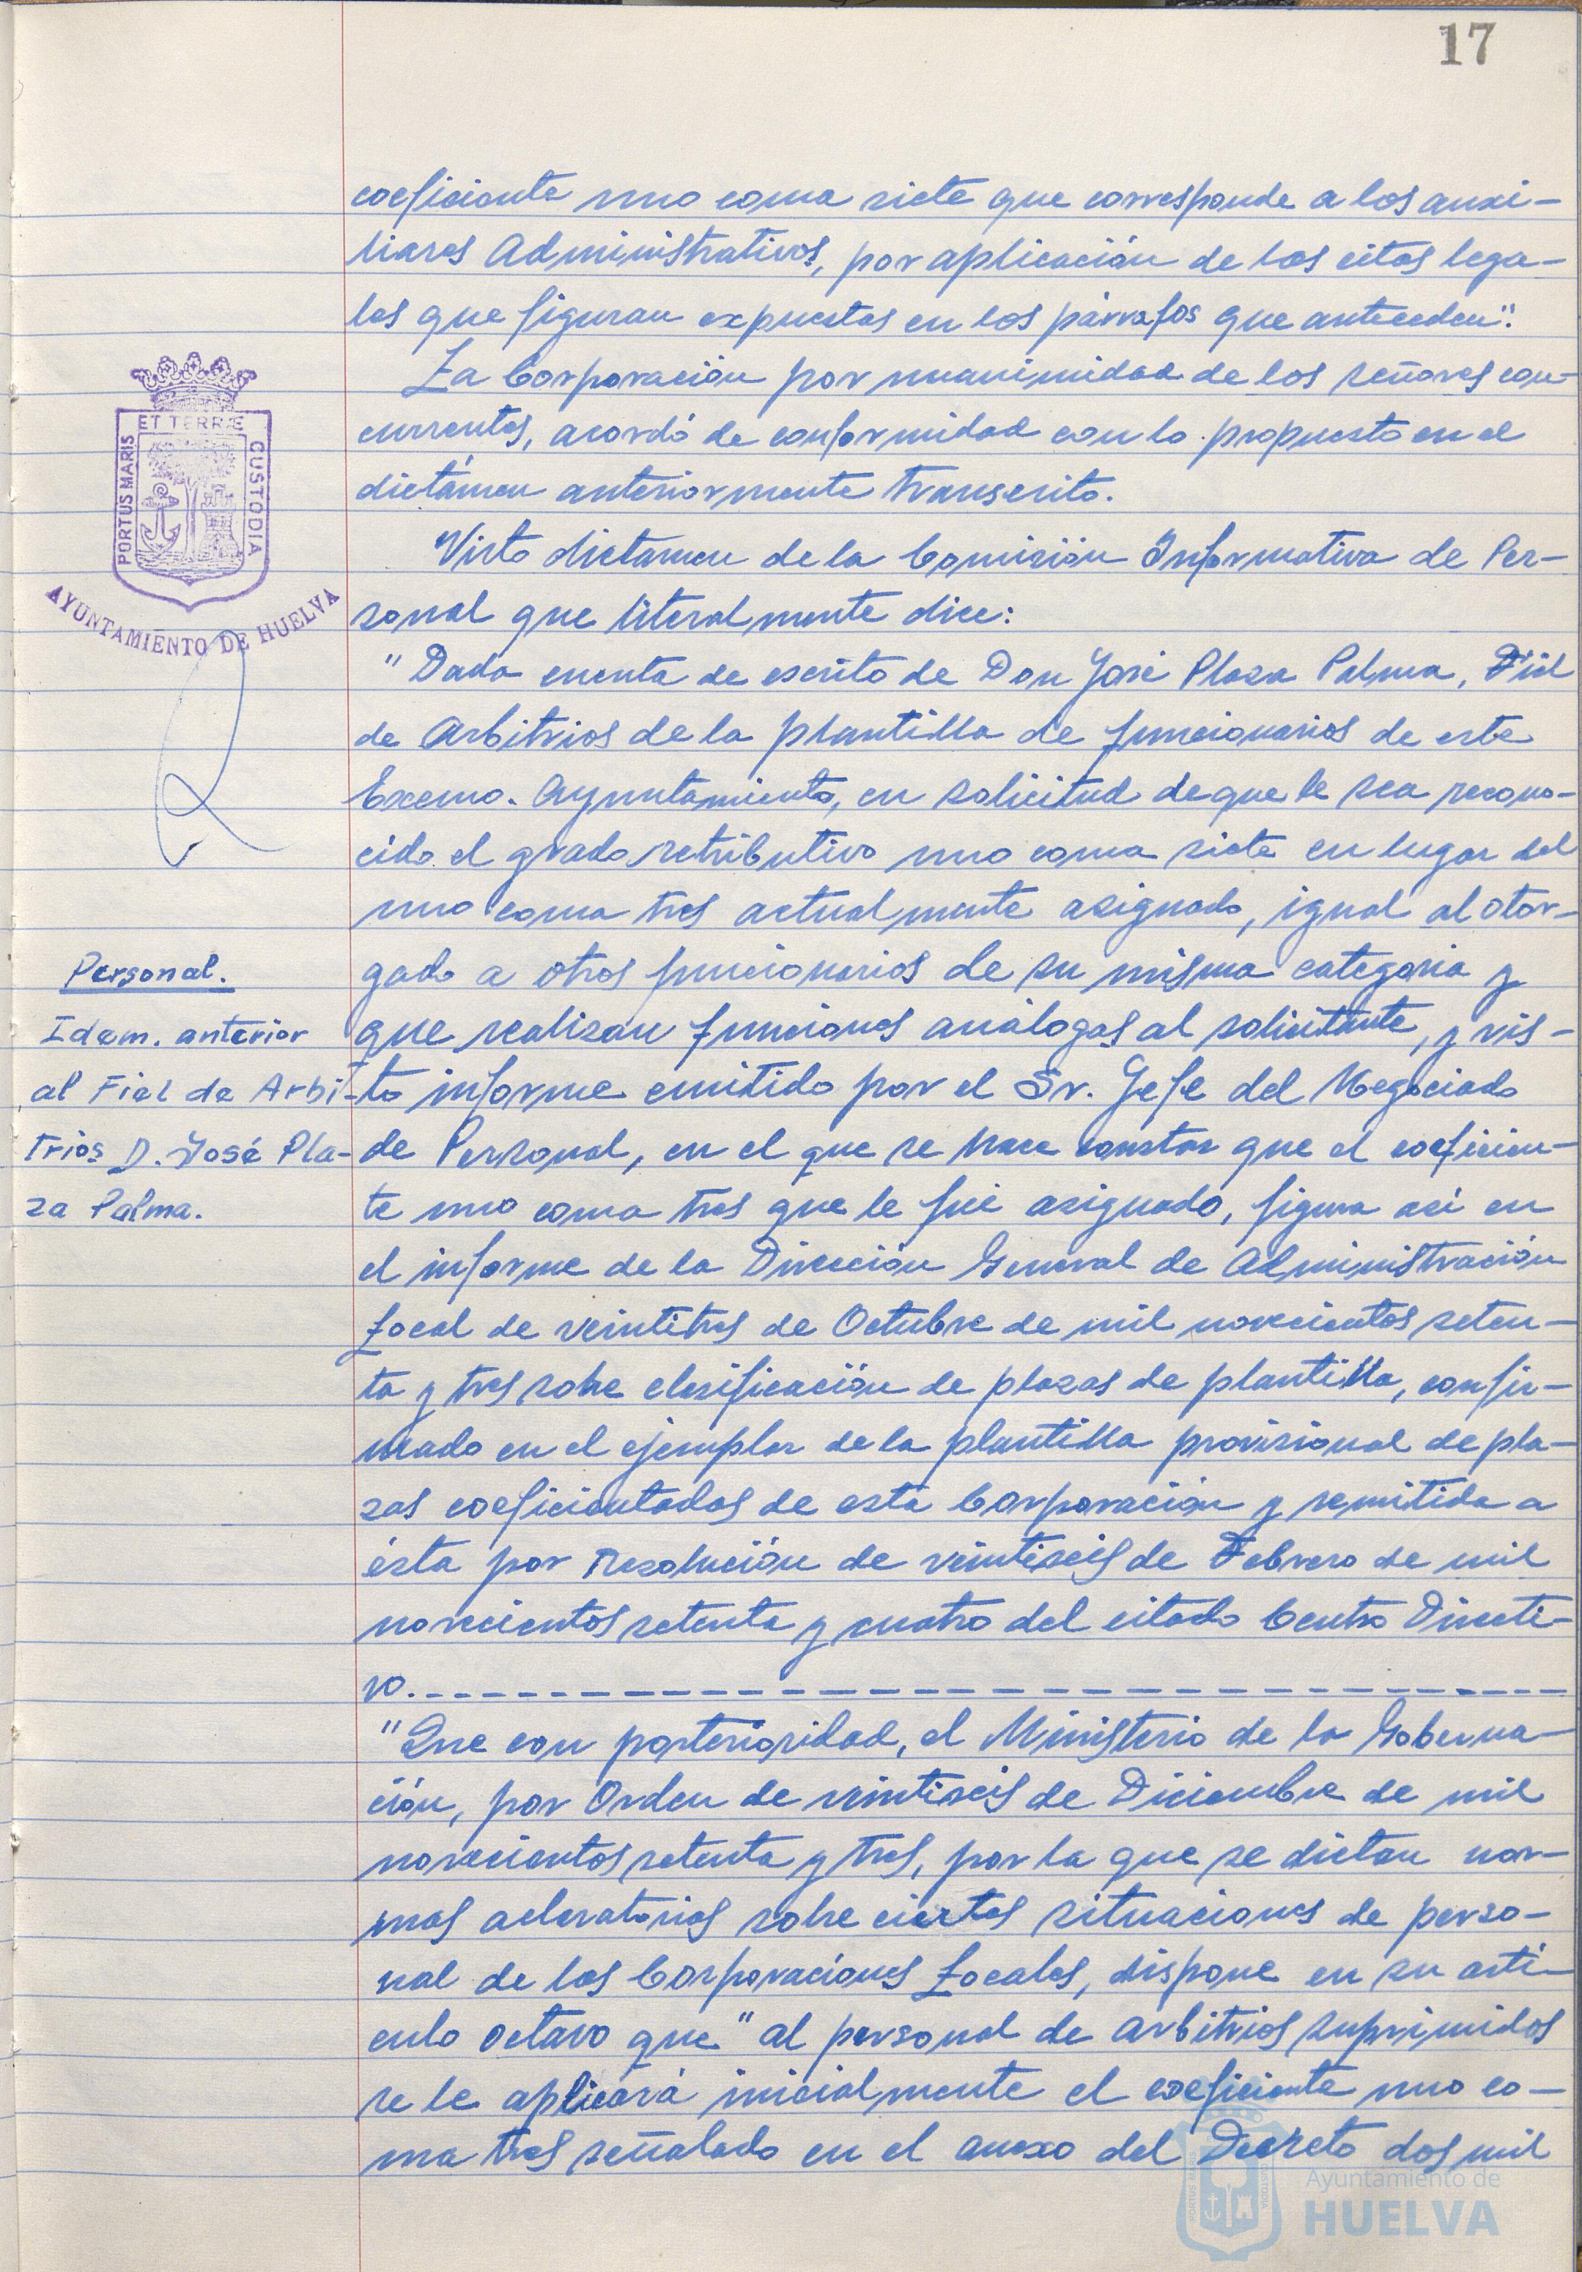 17
coeficiente uno coma siete que corresponde a los auxi-
liares Administrativos, por aplicación de las citas lega-
les que figuran expuestas en los párrafos que anteceden".
La Corporación por unanimidad de los señores con-
currentes, acordó de conformidad con lo propuesto en el
dictámen anteriormente transcrito.
Visto dictamen de la Comisión Informativa de Per-
sonal que literalmente dice:
"Dada cuenta de escrito de Don José Plaza Palma, Fiel
de Arbitrios de la plantilla de funcionarios de este
Excmo. Ayuntamiento, en solicitud de que le sea recono-
cido el grado retributivo uno coma siete en lugar del
uno coma tres actualmente asignado, igual al otor-
gado a otros funcionarios de su misma categoria y
que realizan funciones análogas al solicitante, y vis-
to informe emitido por el Sr. Gefe del Negociado
de Personal, en el que se hace constar que el coeficien-
te uno coma tres que le fué asignado, figura así en
el informe de la Dirección General de Administración
Local de veintitres de Octubre de mil novecientos seten-
ta y tres sobre clasificación de plazas de plantilla, confir-
mado en el ejemplar de la plantilla provisional de pla-
zas coeficientadas de esta Corporación y remitida a
ésta por Resolución de veintiseis de Febrero de mil
novecientos setenta y cuatro del citado Centro Directi-
vo.
"Que con posterioridad, el Ministerio de la Goberna-
ción, por Orden de veintiseis de Diciembre de mil
novecientos setenta y tres, por la que se dictan nor-
mas aclaratorias sobre ciertas situaciones de perso-
nal de las Corporaciones Locales, dispone en su artí-
culo octavo que "al personal de arbitrios suprimidos
se le aplicará inicialmente el coeficiente uno co-
ma tres señalado en el anexo del Decreto dos mil
PORTUS MARIS ET TERRÆ CUSTODIA
AYUNTAMIENTO DE HUELVA
Personal.
Idem. anterior
al Fiel de Arbi-
trios D. José Pla-
za Palma.
Ayuntamiento de
HUELVA